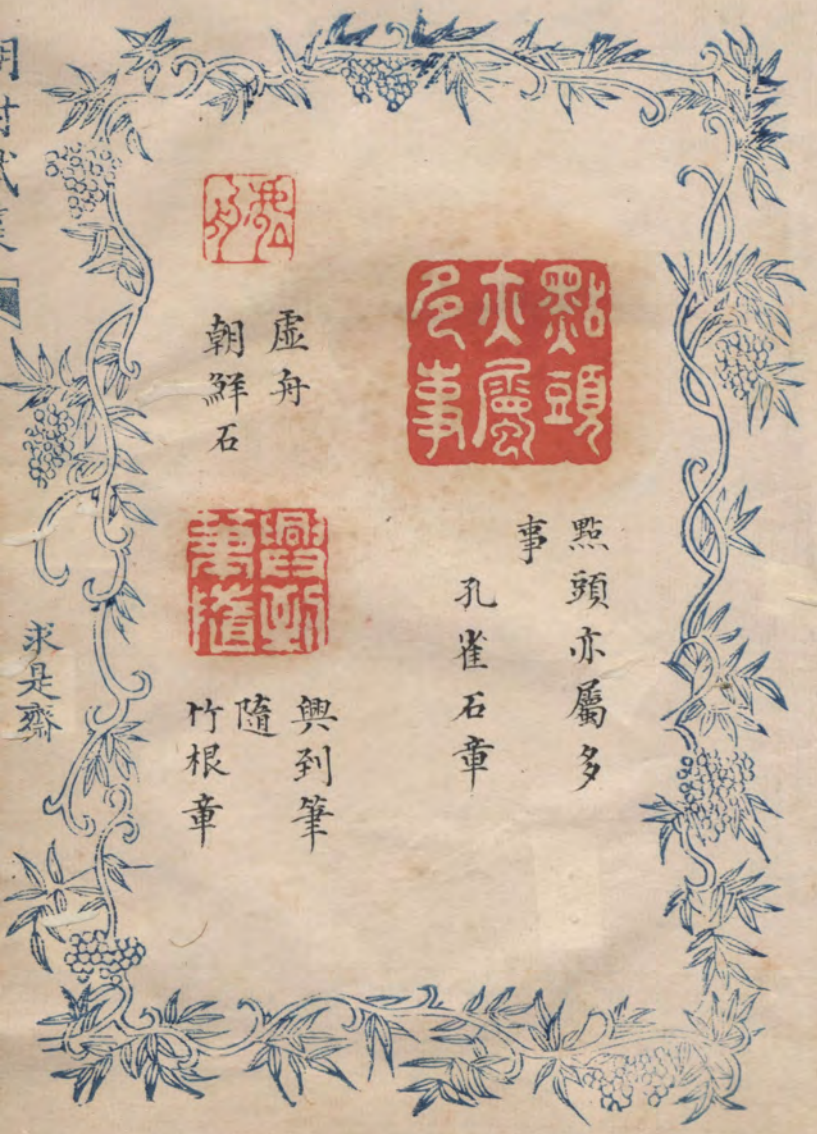 點頭亦屬多事
點頭亦屬多
事
孔雀石章
虛舟
虛舟
朝鮮石
興到筆隨
興到筆
隨
竹根章
求是齋